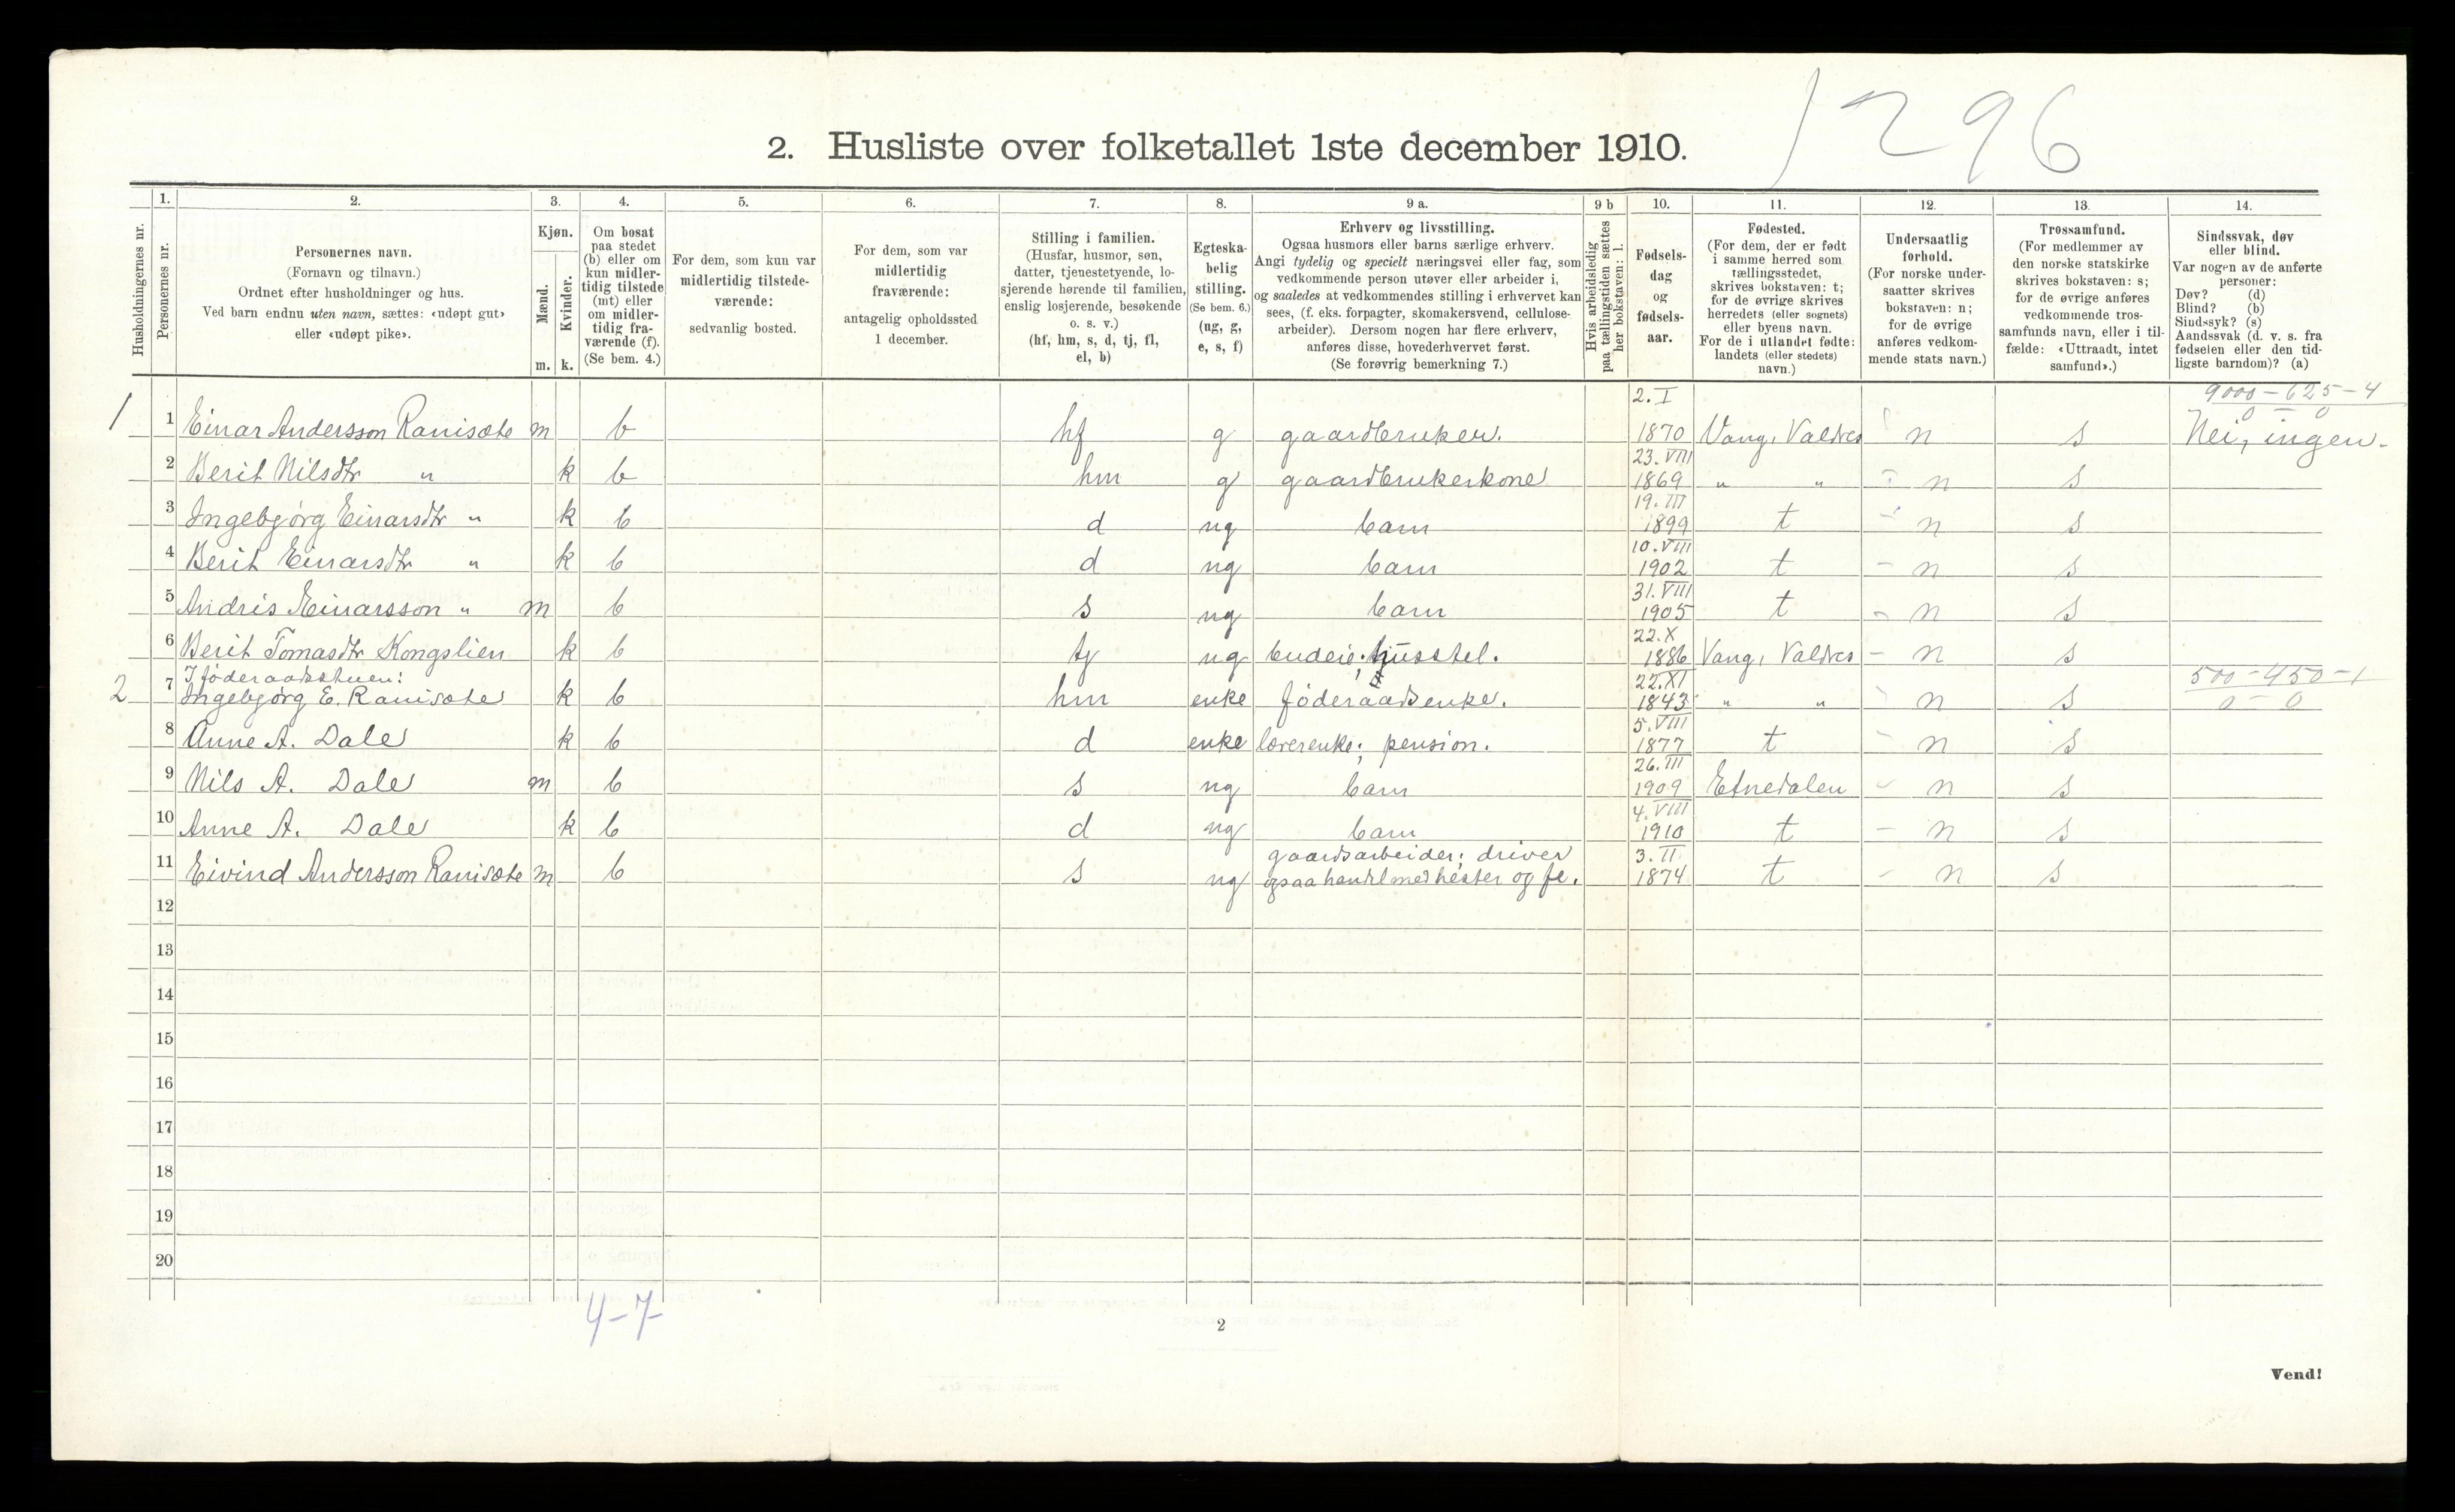 1296
2. Husliste over folketallet 1ste december 1910.
Husholdningernes nr.
1. Personernes nr.
2.
Personernes navn.
(Fornavn og tilnavn.)
Ordnet efter husholdninger og hus.
Ved barn endnu uten navn, sættes: «udøpt gut»
eller «udøpt pike».
3.
Kjøn.
Mænd. Kvinder.
m. k.
4.
Om bosat
paa stedet
(b) eller om
kun midler-
tidig tilstede
(mt) eller
om midler-
tidig fra-
værende (f).
(Se bem. 4.)
5.
For dem, som kun var
midlertidig tilstede-
værende:
sedvanlig bosted.
6.
For dem, som var
midlertidig
fraværende:
antagelig opholdssted
1 december.
7.
Stilling i familien.
(Husfar, husmor, søn,
datter, tjenestetyende, lo-
sjerende hørende til familien,
enslig losjerende, besøkende
o. s. v.)
(hf, hm, s, d, tj, fl,
el, b)
8.
Egteska-
belig
stilling.
(Se bem. 6.)
(ug, g,
e, s, f)
9 a.
Erhverv og livsstilling.
Ogsaa husmors eller barns særlige erhverv.
Angi tydelig og specielt næringsvei eller fag, som
vedkommende person utøver eller arbeider i,
og saaledes at vedkommendes stilling i erhvervet kan
sees, (f. eks. forpagter, skomakersvend, cellulose-
arbeider). Dersom nogen har flere erhverv,
anføres disse, hovederhvervet først.
(Se forøvrig bemerkning 7.)
9 b
Hvis arbeidsledig
paa tællingstiden sættes
her bokstaven: l.
10.
Fødsels-
dag
og
fødsels-
aar.
11.
Fødested.
(For dem, der er født
i samme herred som
tællingsstedet,
skrives bokstaven: t;
for de øvrige skrives
herredets (eller sognets)
eller byens navn.
For de i utlandet fødte:
landets (eller stedets)
navn.)
12.
Undersaatlig
forhold.
(For norske under-
saatter skrives
bokstaven: n;
for de øvrige
anføres vedkom-
mende stats navn.)
13.
Trossamfund.
(For medlemmer av
den norske statskirke
skrives bokstaven: s;
for de øvrige anføres
vedkommende tros-
samfunds navn, eller i til-
fælde: «Uttraadt, intet
samfund».)
14.
Sindssvak, døv
eller blind.
Var nogen av de anførte
personer:
Døv? (d)
Blind? (b)
Sindssyk? (s)
Aandssvak (d. v. s. fra
fødselen eller den tid-
ligste barndom)? (a)
2. I 9000 – 625 – 4
0 – 0
1 1 Einar Andersson Ranisæte m b hf g gaardbruker. 1870 Vang, Valdres n s Nei, ingen.
23. VIII
2 Berit Nilsdtr " k b hm g gaardbrukerkone 1869 " " n s
19. III
3 Ingebjørg Einarsdtr " k b d ug barn 1899 t n s
10. VIII
4 Berit Einarsdtr " k b d ug barn 1902 t n s
31. VIII
5 Andris Einarsson " m b s ug barn 1905 t n s
22. X
6 Berit Tomasdtr Kongslien k b tj ug budeie; husstel. 1886 Vang, Valdres n s
I føderaadsstuen: 22. XI 500 – 450 – 1
2 7 Ingebjørg E. Ranisæte k b hm enke føderaadsenke. 1843 " " n s 0 – 0
5. VIII
8 Anne A. Dale k b d enke lærerenke; pension. 1877 t n s
26. III
9 Nils A. Dale m b s ug barn 1909 Etnedalen n s
4. VIII
10 Anne A. Dale k b d ug barn 1910 t n s
gaardsarbeider; driver 3. II
11 Eivind Andersson Ranisæte m b s ug ogsaa handel med hester og fe. 1874 t n s
12
13
14
15
16
17
18
19
20
4-7
2
Vend!